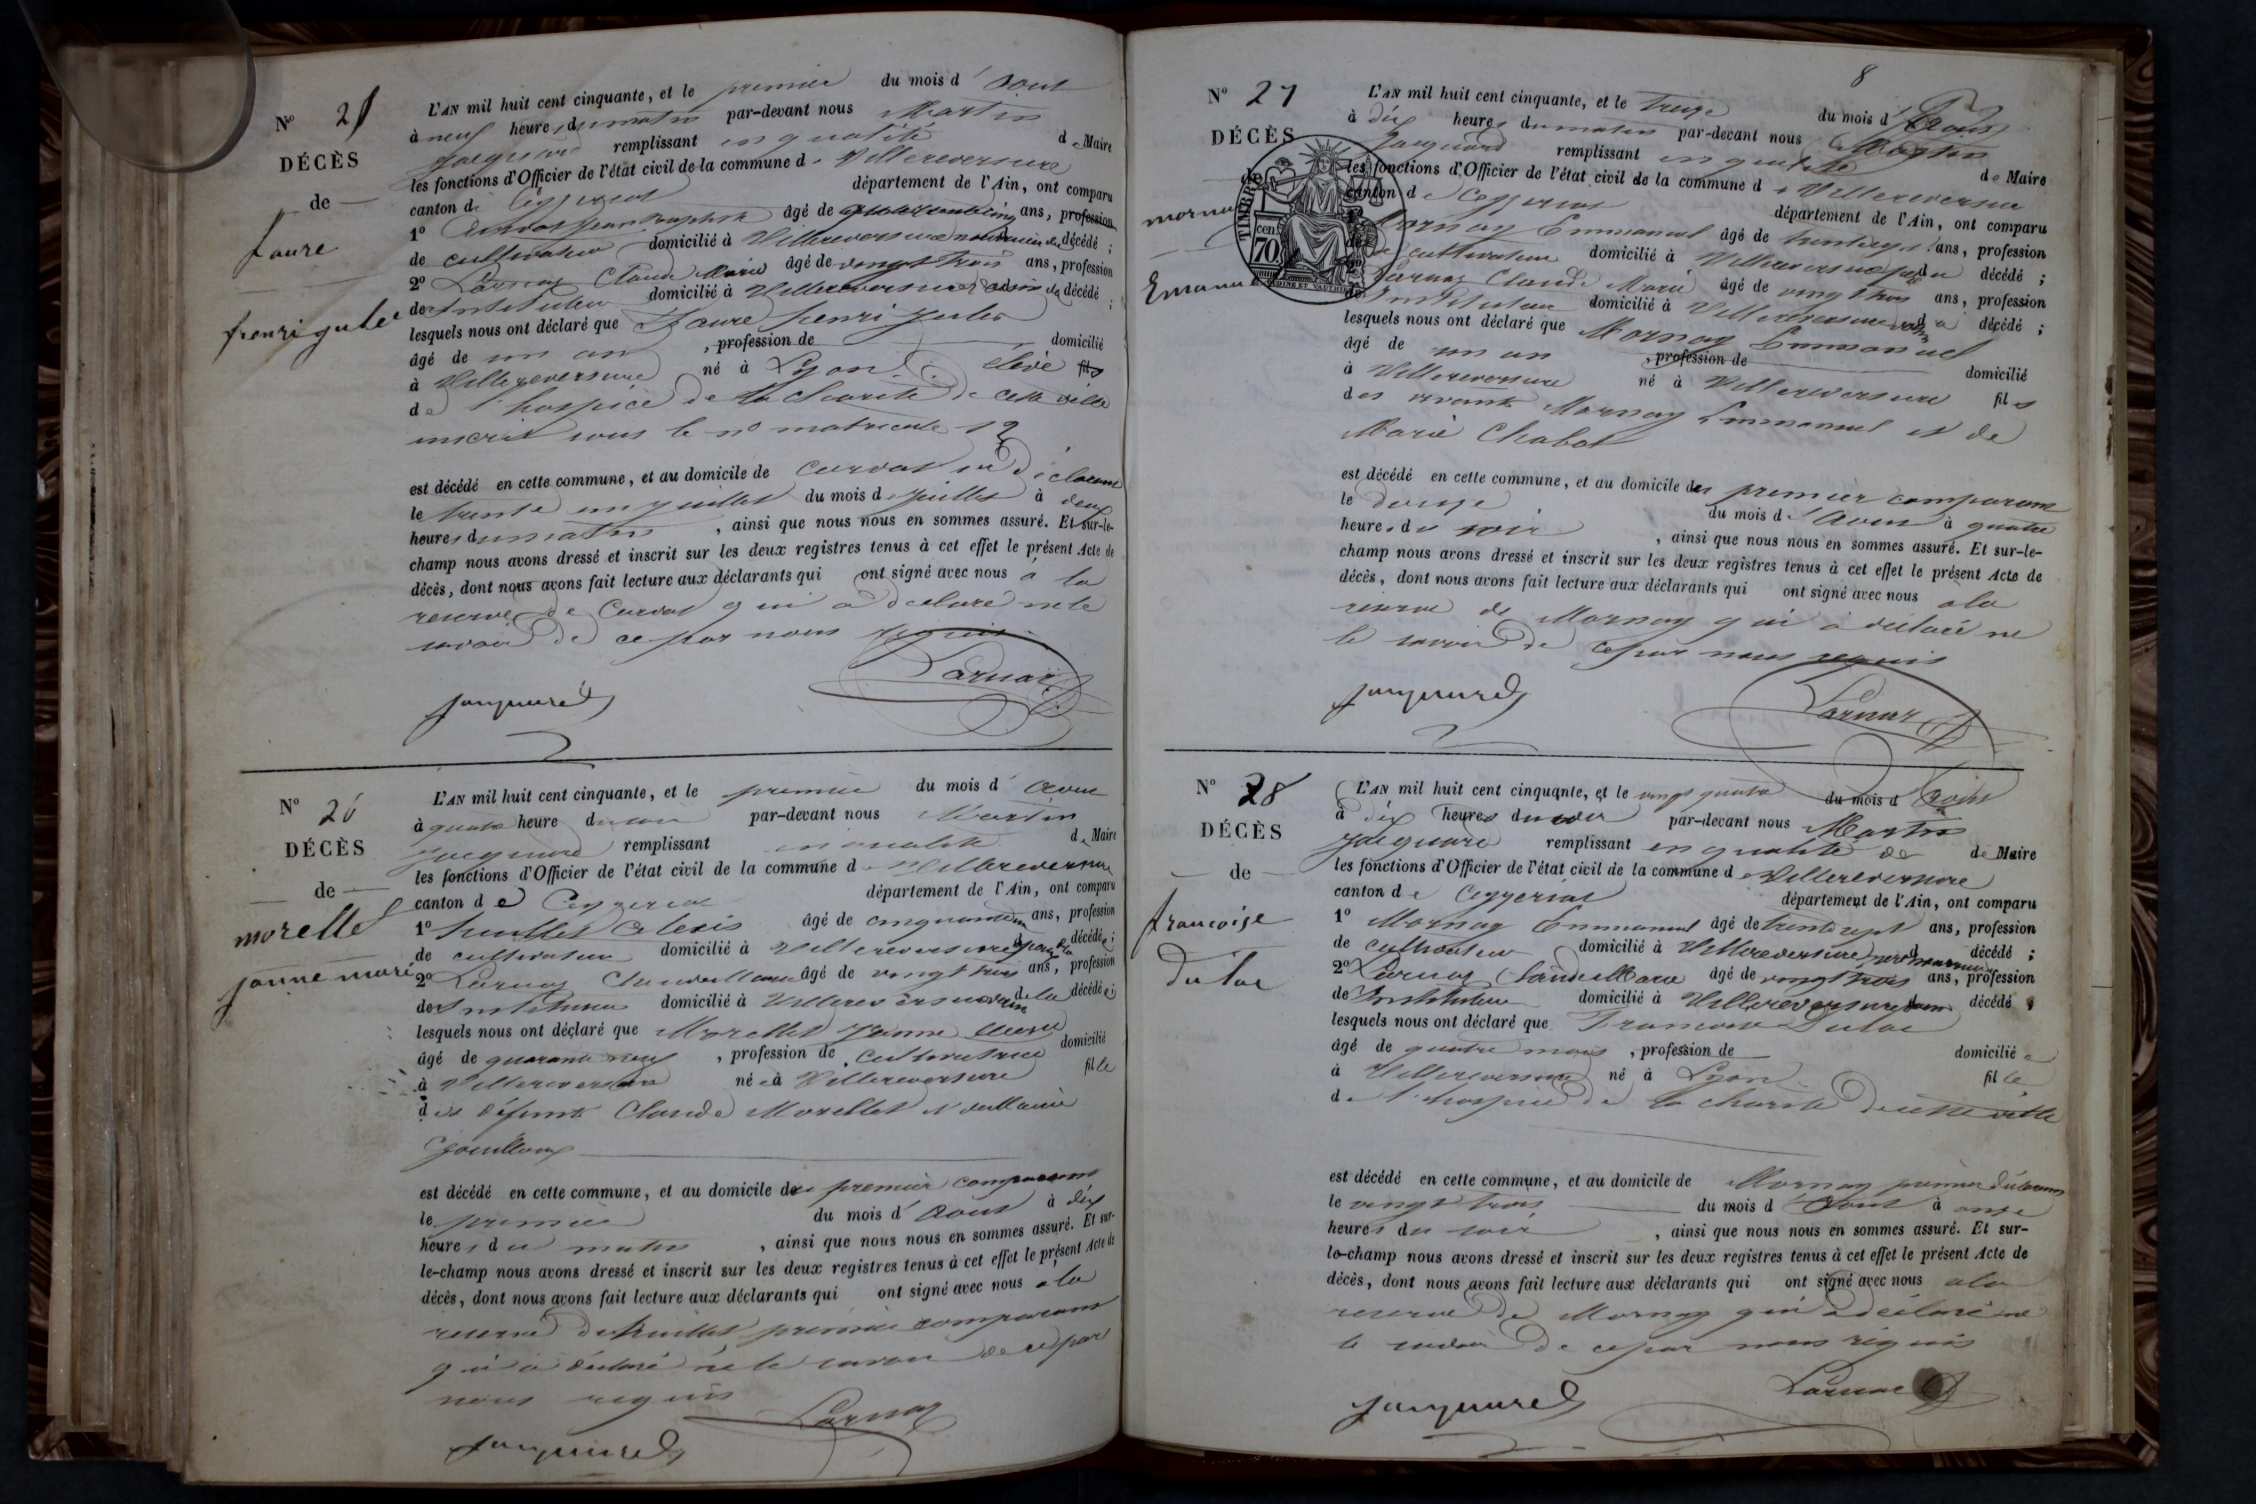 N° 25
DÉCÈS
de
faure
henri jules
L'AN mil huit cent cinquante, et le premier du mois d'aout
à neuf heure du matin par-devant nous Martin
Jacquard remplissant en qualité de Maire
les fonctions d'Officier de l'état civil de la commune de Villereversure
canton de Ceyzeriat département de l'Ain, ont comparu
1° Curvat jean Baptiste âgé de quarante cinq ans, profession
de cultivateur domicilié à Villereversure nourricier du décédé ;
2° Larnay Claude Marie âgé de vingt trois ans, profession
de Instituteur domicilié à Villereversure voisin du décédé ;
lesquels nous ont déclaré que Faure henri jules
âgé de un an , profession de domicilié
à Villereversure né à Lyon élève fils
de l'hospice de la Charité de cette ville
inscrit sous le n° matricule 12
est décédé en cette commune, et au domicile de Curvat un déclarant
le trente un juillet du mois de juillet à deux
heures du matin , ainsi que nous nous en sommes assuré. Et sur-le-
champ nous avons dressé et inscrit sur les deux registres tenus à cet effet le présent Acte de
décès, dont nous avons fait lecture aux déclarants qui ont signé avec nous à la
reserve de Curvat qui a declaré ne le
savoir de ce par nous requis
Jacquard Larnay
N° 26
DÉCÈS
de
morellet
janne marie
L'AN mil huit cent cinquante, et le premier du mois d'aout
à quatre heure du soir par-devant nous Martin
Jacquard remplissant en qualité de Maire
les fonctions d'Officier de l'état civil de la commune de Villereversure
canton de Ceyzeriat département de l'Ain, ont comparu
1° Alexis âgé de cinquante ans, profession
de cultivateur domicilié à Villereversure décédée ;
2° Larnay Claude Marie âgé de vingt trois ans, profession
de Instituteur domicilié à Villereversure voisin de la décédée ;
lesquels nous ont déclaré que Morellet Jeanne Marie
âgé de quarante neuf , profession de cultivatrice domicilié
à Villereversure née à Villereversure fille
des défunts Claude Morellet et de Marie
Gouilloux
est décédé en cette commune, et au domicile de premier comparant
le premier du mois d'aout à dix
heures du matin , ainsi que nous nous en sommes assuré. Et sur-
le-champ nous avons dressé et inscrit sur les deux registres tenus à cet effet le présent Acte de
décès, dont nous avons fait lecture aux déclarants qui ont signé avec nous a la
reserve de premier comparant
qui a declaré ne le savoir de ce par
nous requis
Larnay
Jacquard
8
N° 27
DÉCÈS
de
mornay
Emanuel
TIMBRE
cen
70
L'AN mil huit cent cinquante, et le treize du mois d'Aout
à dix heures du matin par-devant nous Martin
Jacquard remplissant en qualité de Maire
les fonctions d'Officier de l'état civil de la commune de Villereversure
canton de Ceyzeriat département de l'Ain, ont comparu
1° Mornay Emmanuel âgé de trente sept ans, profession
de cultivateur domicilié à Villereversure père du décédé ;
2° Larnay Claude Marie âgé de vingt trois ans, profession
de Instituteur domicilié à Villereversure voisin du décédé ;
lesquels nous ont déclaré que Mornay Emmanuel
âgé de un an , profession de domicilié
à Villereversure né à Villereversure fils
des vivants Mornay Emmanuel et de
Marie Chabot
est décédé en cette commune, et au domicile de premier comparant
le douze du mois d'Aout à quatre
heures du soir , ainsi que nous nous en sommes assuré. Et sur-le-
champ nous avons dressé et inscrit sur les deux registres tenus à cet effet le présent Acte de
décès, dont nous avons fait lecture aux déclarants qui ont signé avec nous a la
reserve de Mornay qui a déclaré ne
le savoir de ce par nous requis
Jacquard Larnay
N° 28
DÉCÈS
de
francoise
Dulac
L'AN mil huit cent cinquante, et le vingt quatre du mois d'Aout
à dix heures du par-devant nous Martin
Jacquard remplissant en qualité de de Maire
les fonctions d'Officier de l'état civil de la commune de Villereversure
canton de Ceyzeriat département de l'Ain, ont comparu
1° Mornay Emmanuel âgé de trente sept ans, profession
de cultivateur domicilié à Villereversure décédé ;
2° Larnay Claude Marie âgé de vingt trois ans, profession
de Instituteur domicilié à Villereversure décédé
lesquels nous ont déclaré que Francoise Dulac
âgé de quatre mois , profession de domiciliée
à Villereversure né à Lyon fille
de l'hospice de la charité de cette ville
est décédé en cette commune, et au domicile de Mornay premier déclarant
le vingt trois du mois d'Aout à onze
heures du soir , ainsi que nous nous en sommes assuré. Et sur-
le-champ nous avons dressé et inscrit sur les deux registres tenus à cet effet le présent Acte de
décès, dont nous avons fait lecture aux déclarants qui ont signé avec nous a la
reserve de Mornay qui a déclaré ne
le savoir de ce par nous requis
Jacquard Larnay